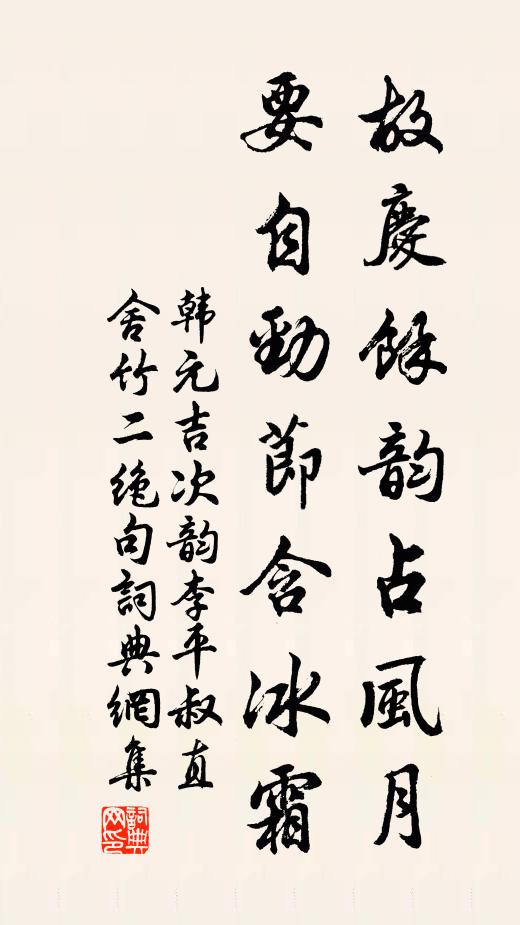 故慶餘韵占風月
要自勁節含冰霜
韩元吉次韵李平叔直
舍竹二绝句詞典網集
詞典网印